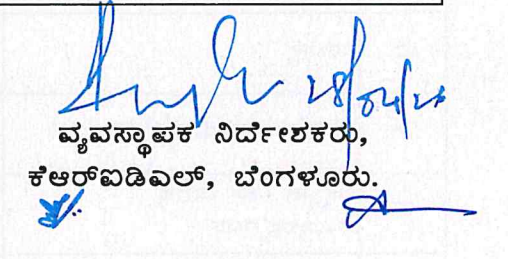 ವ್ಯವಸ್ಥಾಪಕ ನಿರ್ದೇಶಕರು,
ಕೆಆರ್‌ಐಡಿಎಲ್, ಬೆಂಗಳೂರು.